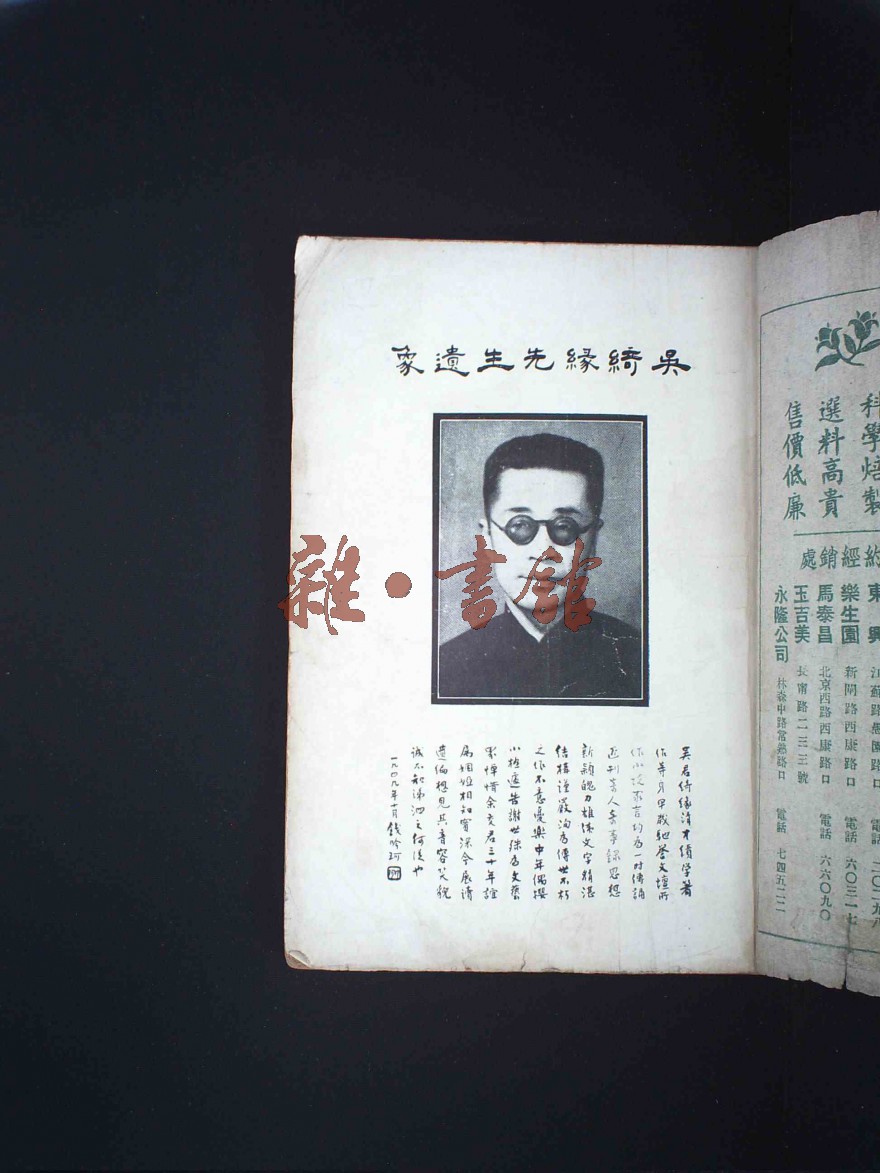 吳綺緣先生遺象
吳君綺緣清才績學著
作等身早歲馳譽文壇所
作小說家言均為一時傳誦
近刊素人多事錄思想
新穎魄力雄偉文字精湛
結構謹嚴洵為傳世不朽
之作不意憂樂中年偶攖
小極遽告謝世殊為文藝
界悼惜余交君三十年誼
屬姻婭相知實深今展讀
遺編想見其音容笑貌
誠不知涕泗之何從也
一九四九年十月錢吟珂
雜·書館
科學焙製
選料高貴
售價低廉
約經銷處
東興 江蘇路愚園路口 電話 二〇二九八
樂生園 新閘路西康路口 電話 六〇三一七
馬泰昌 北京西路西康路口 電話 六六〇九〇
玉吉美 長甯路二三三號
永隆公司 林森中路常熟路口 電話 七四五二二